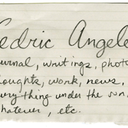 Cedric Angele
journal, writings, photo
thoughts, work, news,
everything under the sun.
whatever, etc.